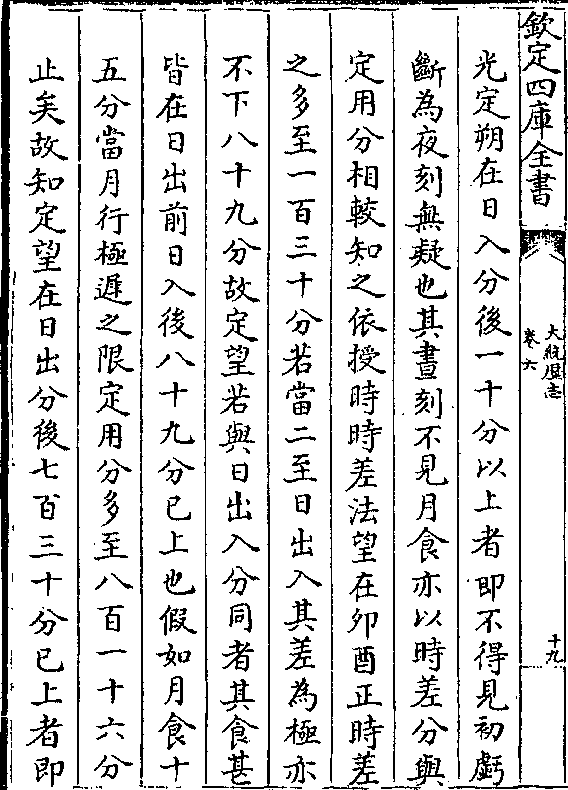 欽定四庫全書
大統厯志
卷六
十九
光定朔在日入分後一十分以上者即不得見初虧
斷為夜刻無疑也其晝刻不見月食亦以時差分與
定用分相較知之依授時時差法望在夘酉正時差
之多至一百三十分若當二至日出入其差為極亦
不下八十九分故定望若與日出入分同者其食甚
皆在日出前日入後八十九分已上也假如月食十
五分當月行極遲之限定用分多至八百一十六分
止矣故知定望在日出分後七百三十分已上者即